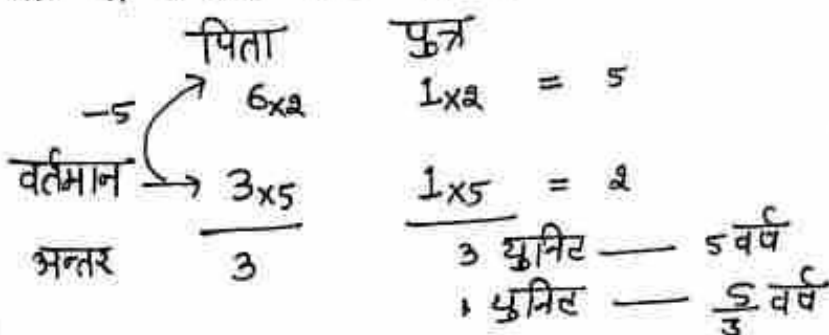 पिता पुत्र
-5 6x2 1x2 = 5
वर्तमान → 3x5 1x5 = 2
अन्तर 3 3 युनिट — 5 वर्ष
1 युनिट — 5/3 वर्ष